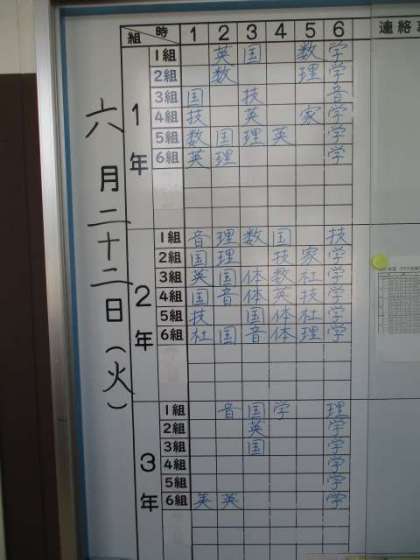 六月二十二日(火)
組 時 1 2 3 4 5 6 連絡
1年
1組 英 国 数 学
2組 数 理 学
3組 国 技 音
4組 技 英 家 学
5組 数 国 理 英 学
6組 英 理 学
2年
1組 音 理 数 国 技
2組 国 理 技 家 学
3組 英 国 体 数 社 学
4組 国 音 体 英 技 学
5組 技 国 体 社 学
6組 社 国 音 体 理 学
3年
1組 音 国 学 理
2組 英 学
3組 国 学
4組 学
5組 学
6組 美 英 学